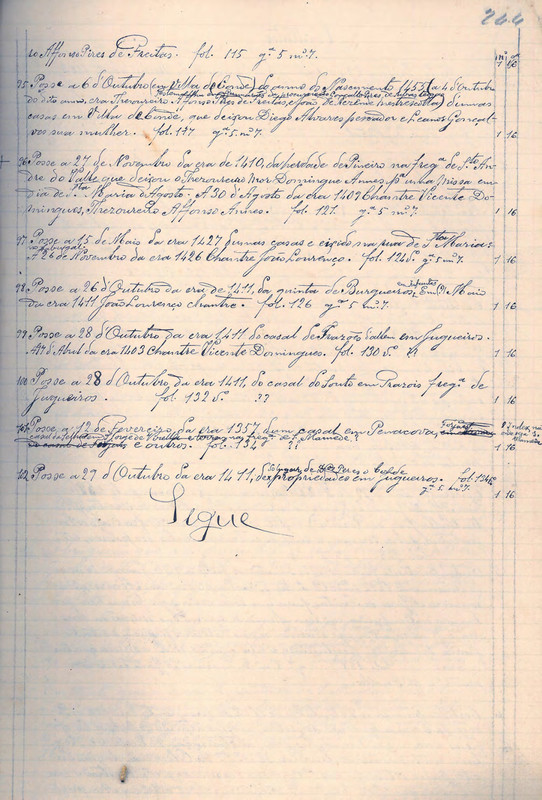 266
ro Affonso Pires de Freitas. fol. 115 gª 5 mº 7.
nº 7 gª 16
95. Posse a 6 d'Outubro (em Villa do Conde) do anno do Nascimento 1455 (a 4 d'Outubro
d'este anno, era Thesoureiro Affonso Pires de Freitas, e João de mestreescola) d'umas
casas em Villa do Conde, que deixou Diego Alvares pescador e Leanor Gonçal-
ves sua mulher. fol. 117 gª 5 mº 7. 1 16
96. Posse a 27 de Novembro da era de 1410, da herdade de Pineiro na fregª de Stº An-
dre do Valle que deixou o Thesoureiro Mor Domingue Annes pª uma missa em
dia de Stª Maria d'Agosto. A 30 d'Agosto da era 1409 Chantre Vicente Do-
mingues, Thesoureiro Affonso Annes. fol. 121. gª 5 mº 7. 1 16
97. Posse a 15 de Maio da era 1427 d'umas casas e eixido na rua de Stª Maria.
A 26 de Novembro da era 1426 Chantre João Lourenço. fol. 124 gª 5 mº 7. 1 16
98. Posse a 26 d'Outubro da era de 1411, da quinta de Burgueiros, Em (?) Maio
da era 1411 João Lourenço chantre. fol. 126 gª 5 mº 7. 1 16
99. Posse a 28 d'Outubro da era 1411 do casal de Frazão d'allem em Jugueiros.
A 4 d'Abril da era 1403 Chantre Vicente Domingues. fol. 130 1 16
100. Posse a 28 d'Outubro da era 1411, do casal do Souto em fregª de
Jugueiros. fol. 132 ?? 1 16
101. Posse a 12 de Fevereiro da era 1357 d'um casal em Penacova,
e outros. fol. 134 ?? 1 16
102. Posse a 29 d'Outubro da era 1411, de propriedades em Jugueiros. fol. 134
gª 5 mº 7. 1 16
Segue